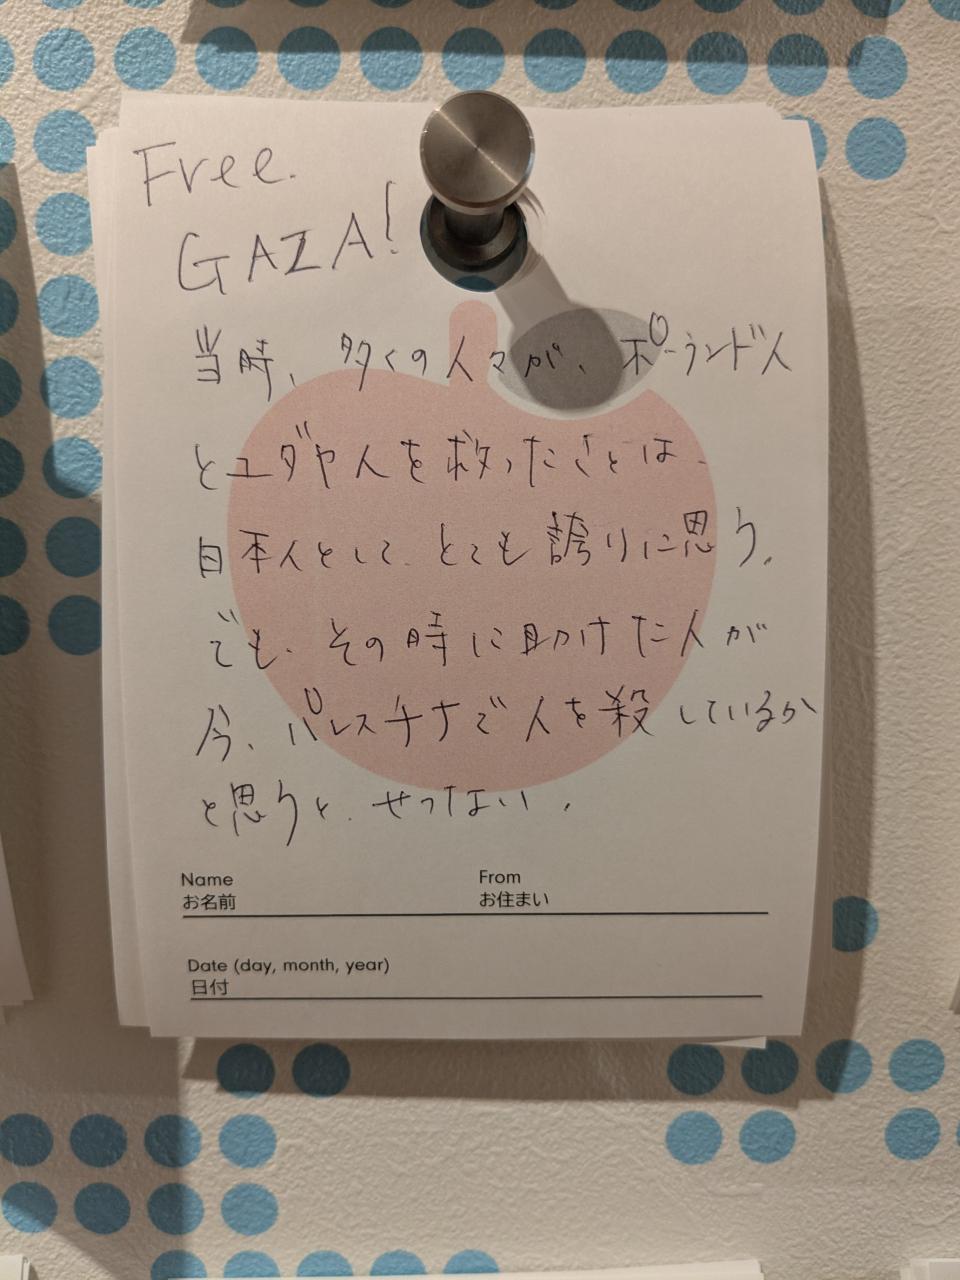 Free.
GAZA!
当時、多くの人々が、ポーランド人
とユダヤ人を救ったことは、
日本人として、とても誇りに思う。
でも、その時に助けた人が
今、パレスチナで人を殺しているか
と思うと、せつない。
Name From
お名前 お住まい
Date (day, month, year)
日付